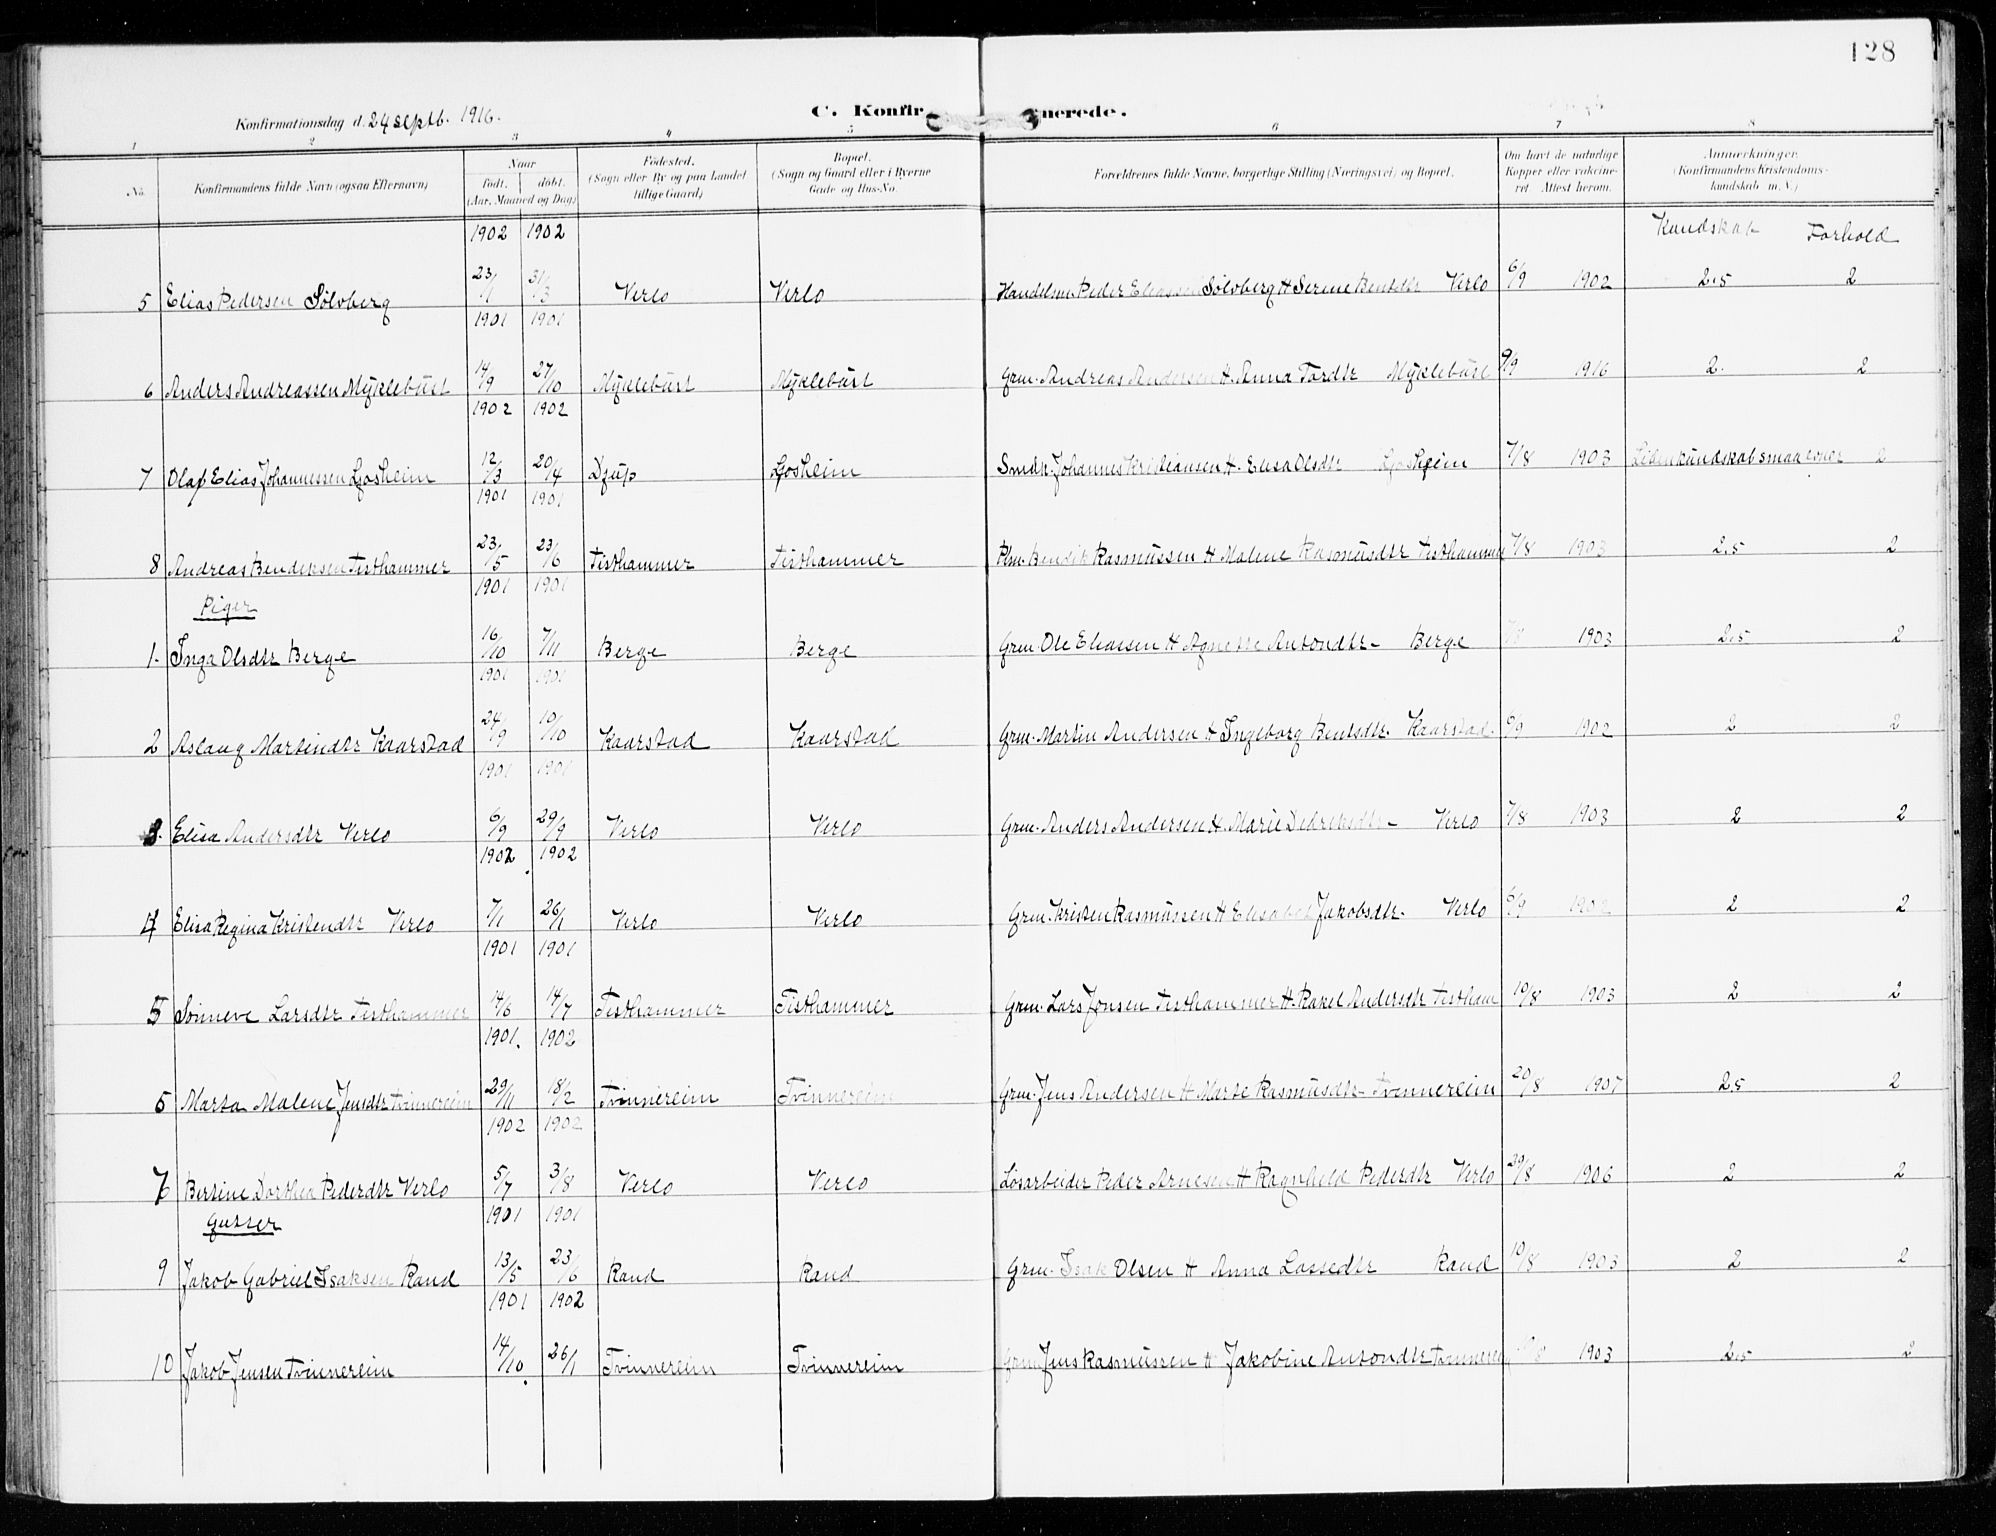 128
Konfirmationsdag d. 24 septb. 1916.
C. Konfirmerede.
1 2 3 4 5 6 7 8
No.
Konfirmandens fulde Navn (ogsaa Efternavn)
Naar
født. døbt.
(Aar, Maaned og Dag)
Fødested.
(Sogn eller By og paa Landet
tillige Gaard)
Bopæl.
(Sogn og Gaard eller i Byerne
Gade og Hus-No.
Forældrenes fulde Navne, borgerlige Stilling (Næringsvei) og Bopæl.
Om havt de naturlige
Kopper eller vaksine-
ret. Attest herom.
Anmærkninger.
(Konfirmandens Kristendoms-
kundskab m. V.)
1902 1902 Kundskab Forhold
5 Elias Pedersen Sölvberg 23/1 31/3 Verlo Verlo Handelsm. Peder Eliassen Sölvberg H Serene Bentdtr Verlo 6/9 1902 2.5 2
1901 1901
6 Anders Andreassen Myklebüst 14/9 27/10 Myklebüst Myklebüst Grm. Andreas Andersen H. Anna Tordtr Myklebüst 9/9 1916 2. 2
1902 1902
7 Olaf Elias Johannessen Ljosheim 12/3 20/4 Djup Ljosheim Smdr. Johannes Kristiansen H. Elisa Olsdtr Ljosheim 7/8 1903 Liden kundskab smaa evner 2
1901 1901
8 Andreas Bendiksen Tisthammer 23/5 23/6 Tisthammer Tisthammer Plm. Bendik Rasmüssen H Malene Rasmüsdtr Tisthammer 7/8 1903 2.5 2
Piger 1901 1901
1. Inga Olsdtr Berge 16/10 7/11 Berge Berge Grm. Ole Eliassen H Agnethe Antondtr- Berge 7/8 1903 2.5 2
1901 1901
2 Aslaug Martindtr Kaarstad 24/9 10/10 Kaarstad Kaarstad Grm. Martin Andersen H Ingeborg Bentsdtr. Kaarstad. 6/9 1902 2 2
1901 1901
3. Elisa Andersdtr Verlo 6/9 29/9 Verlo Verlo Grm. Anders Andersen H. Marie Didriksdtr- Verlo 7/8 1903 2 2
1902 1902
4 Elisa Regina Kristendtr Verlo 7/1 26/1 Verlo Verlo Grm. Kristen Rasmüssen H Elisabet Jakobsdtr. Verlo 6/9 1902 2 2
1901 1901
5 Sönneve Larsdtr Tisthammer 14/6 14/7 Tisthammer Tisthammer Grm. Lars Jonsen Tisthammer H. Rakel Andersdtr Tistham 10/8 1903 2 2
1901. 1902
5 Marta Malene Jensdtr Tvinnereim 29/11 18/2 Tvinnereim Tvinnereim Grm. Jens Andersen H Marte Rasmüsdtr- Tvinnereim 20/8 1907 2.5 2
1902 1902
6 Bertine Dorthea Pederdtr Verlo 5/7 3/8 Verlo Verlo Lösarbeider Peder Arnesen H Ragnhild Pederdtr Verlo 20/8 1906 2 2
Gutter 1901 1901
9 Jakob Gabriel Isaksen Rand 13/5 23/6 Rand Rand Grm. Isak Olsen H Anna Lassedtr Rand 10/8 1903 2 2
1901 1902
10 Jakob Jensen Tvinnereim 14/10. 26/1 Tvinnereim Tvinnereim Grm Jens Rasmüssen H Jakobine Antondtr 10/8 1903 2.5 2